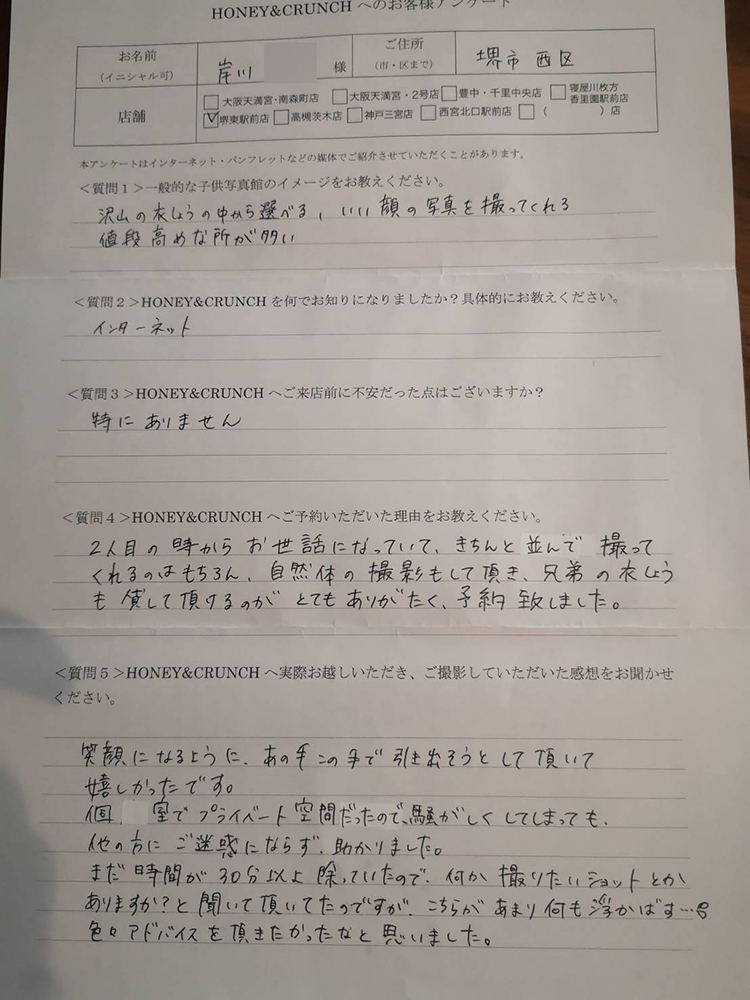 HONEY&CRUNCH へのお客様アンケート
お名前
(イニシャル可)
岸川
様
ご住所
(市・区まで)
堺市 西区
店舗
大阪天満宮・南森町店
大阪天満宮・2号店
豊中・千里中央店
寝屋川枚方
香里園駅前店
堺東駅前店
高槻茨木店
神戸三宮店
西宮北口駅前店
( )店
本アンケートはインターネット・パンフレットなどの媒体でご紹介させていただくことがあります。
<質問1>一般的な子供写真館のイメージをお教えください。
沢山の衣しょうの中から選べる、いい顔の写真を撮ってくれる
値段高めな所が多い
<質問2>HONEY&CRUNCH を何でお知りになりましたか?具体的にお教えください。
インターネット
<質問3>HONEY&CRUNCH へご来店前に不安だった点はございますか?
特にありません
<質問4>HONEY&CRUNCH へご予約いただいた理由をお教えください。
2人目の時からお世話になっていて、きちんと並んで撮って
くれるのはもちろん、自然体の撮影もして頂き、兄弟の衣しょう
も貸して頂けるのがとてもありがたく、予約致しました。
<質問5>HONEY&CRUNCH へ実際お越しいただき、ご撮影していただいた感想をお聞かせ
ください。
笑顔になるように、あの手この手で引き出そうとして頂いて
嬉しかったです。
個室でプライベート空間だったので、騒がしくしてしまっても、
他の方にご迷惑にならず、助かりました。
まだ時間が30分以上除っていたので、何か撮りたいショットとか
ありますか?と聞いて頂いてたのですが、こちらがあまり何も浮かばず…
色々アドバイスを頂きたかったなと思いました。